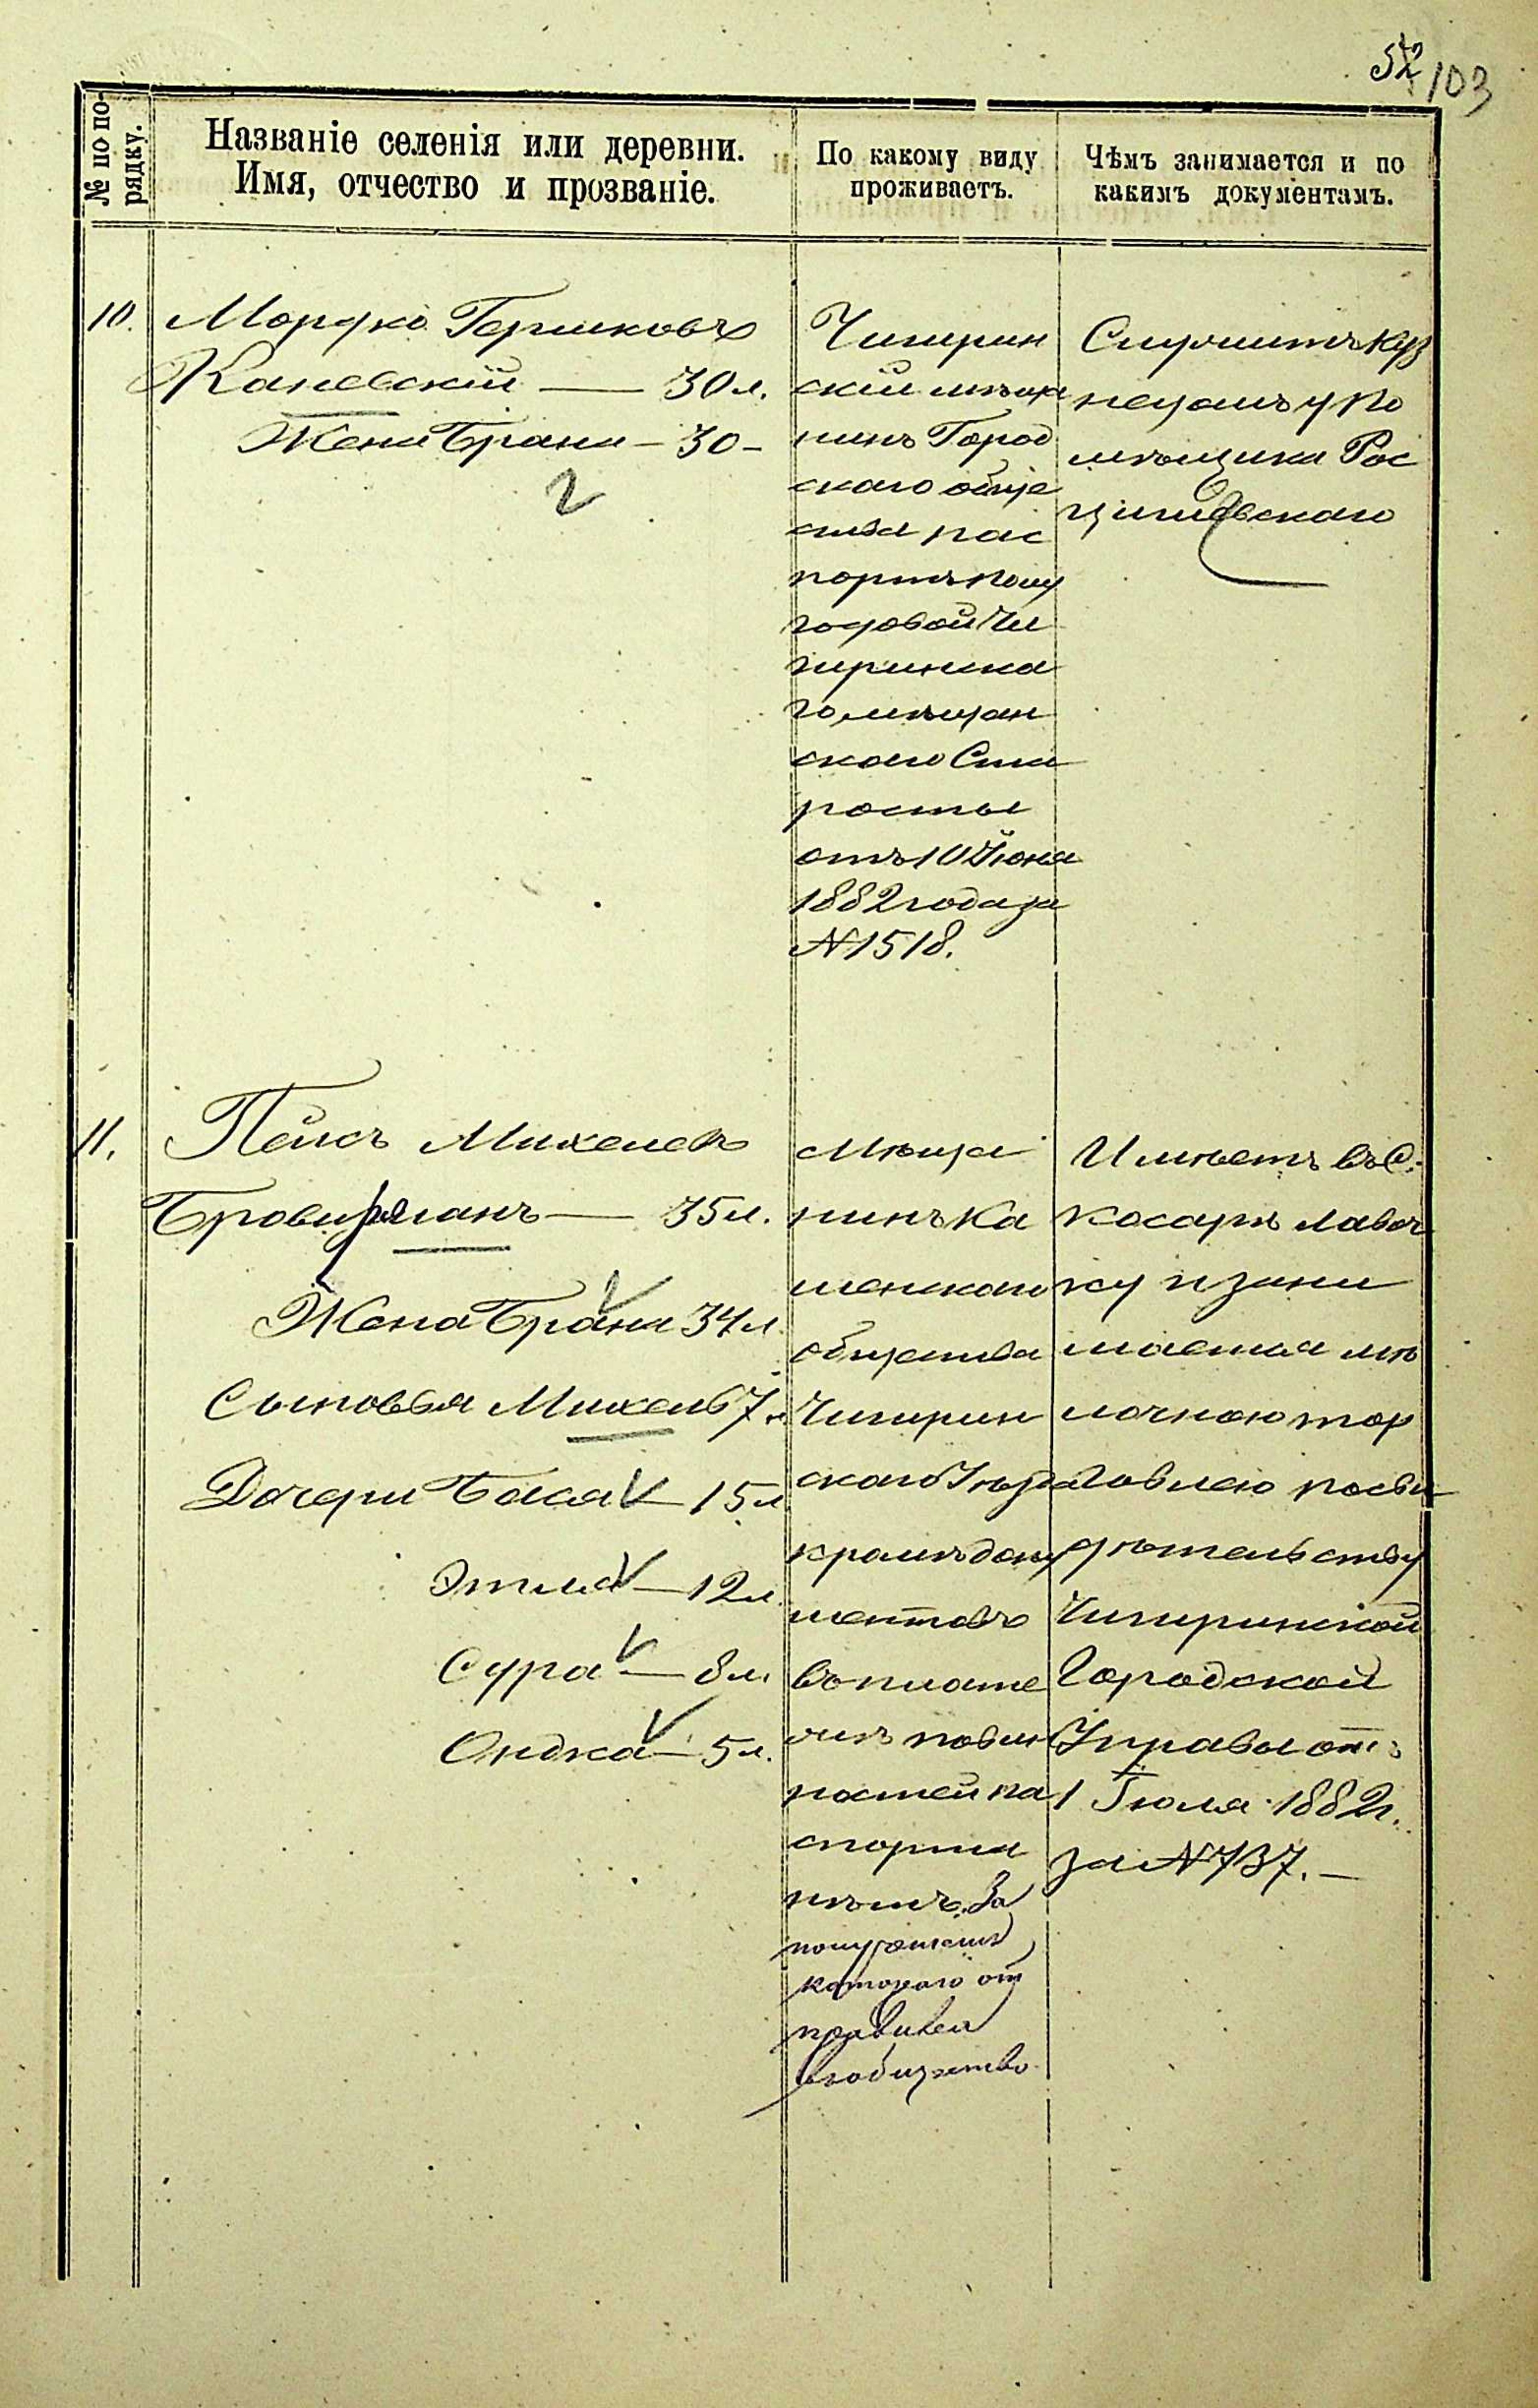 52 103
№ по по-
рядку.
Названіе селенія или деревни.
Имя, отчество и прозваніе.
По какому виду
проживаетъ.
Чѣмъ занимается и по
какимъ документамъ.
10.
Мордко Гершковъ
Каневскій — 30 л.
Жена Брана — 30 —
2
Чигирин
скій мѣща
нинъ Город
скаго обще
ства пас
портъ полу
годовой Чи
гиринска
го мѣщан
скаго Ста
росты
отъ 10 Іюня
1882 года за
№ 1518.
Служитъ куз
нецомъ у по
мѣщика Рос
цишевскаго
11.
Пейсъ Михелевъ
— 35 л.
Жена Брана 34 л.
Сыновья Михель 7 л.
Дочери Бася — 15 л.
Этля — 12 л.
Сура — 8 л.
— 5 л.
Мѣща
нинъ Ка
менскаго
общества
Чигирин
скаго Уѣзда
кромѣ доку
ментовъ
въ плате
жѣ повин
ностей па
спорта
нѣтъ. За
полученіем
котораго от
правился
в общество
Имѣетъ въ С.
Косарѣ лавоч
ку и зани
мается мѣ
лочною тор
говлею по сви
дѣтельству
Чигиринской
Городской
Управы отъ
1 Іюля 1882 г.
за № 737. —